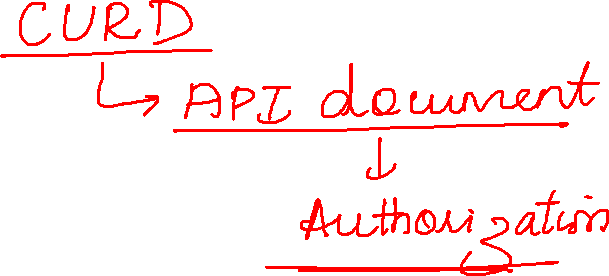 CURD
API document
Authorization